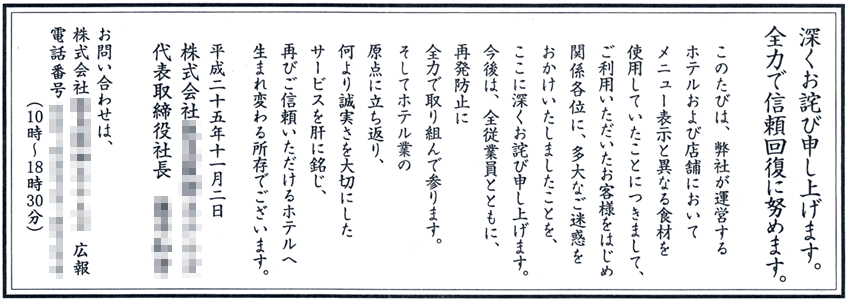 深くお詫び申し上げます。
全力で信頼回復に努めます。
このたびは、弊社が運営する
ホテルおよび店舗において
メニュー表示と異なる食材を
使用していたことにつきまして、
ご利用いただいたお客様をはじめ
関係各位に、多大なご迷惑を
おかけいたしましたことを、
ここに深くお詫び申し上げます。
今後は、全従業員とともに、
再発防止に
全力で取り組んで参ります。
そしてホテル業の
原点に立ち返り、
何より誠実さを大切にした
サービスを肝に銘じ、
再びご信頼いただけるホテルへ
生まれ変わる所存でございます。
平成二十五年十一月二日
株式会社
代表取締役社長
お問い合わせは、
株式会社 広報
電話番号
(10時〜18時30分)